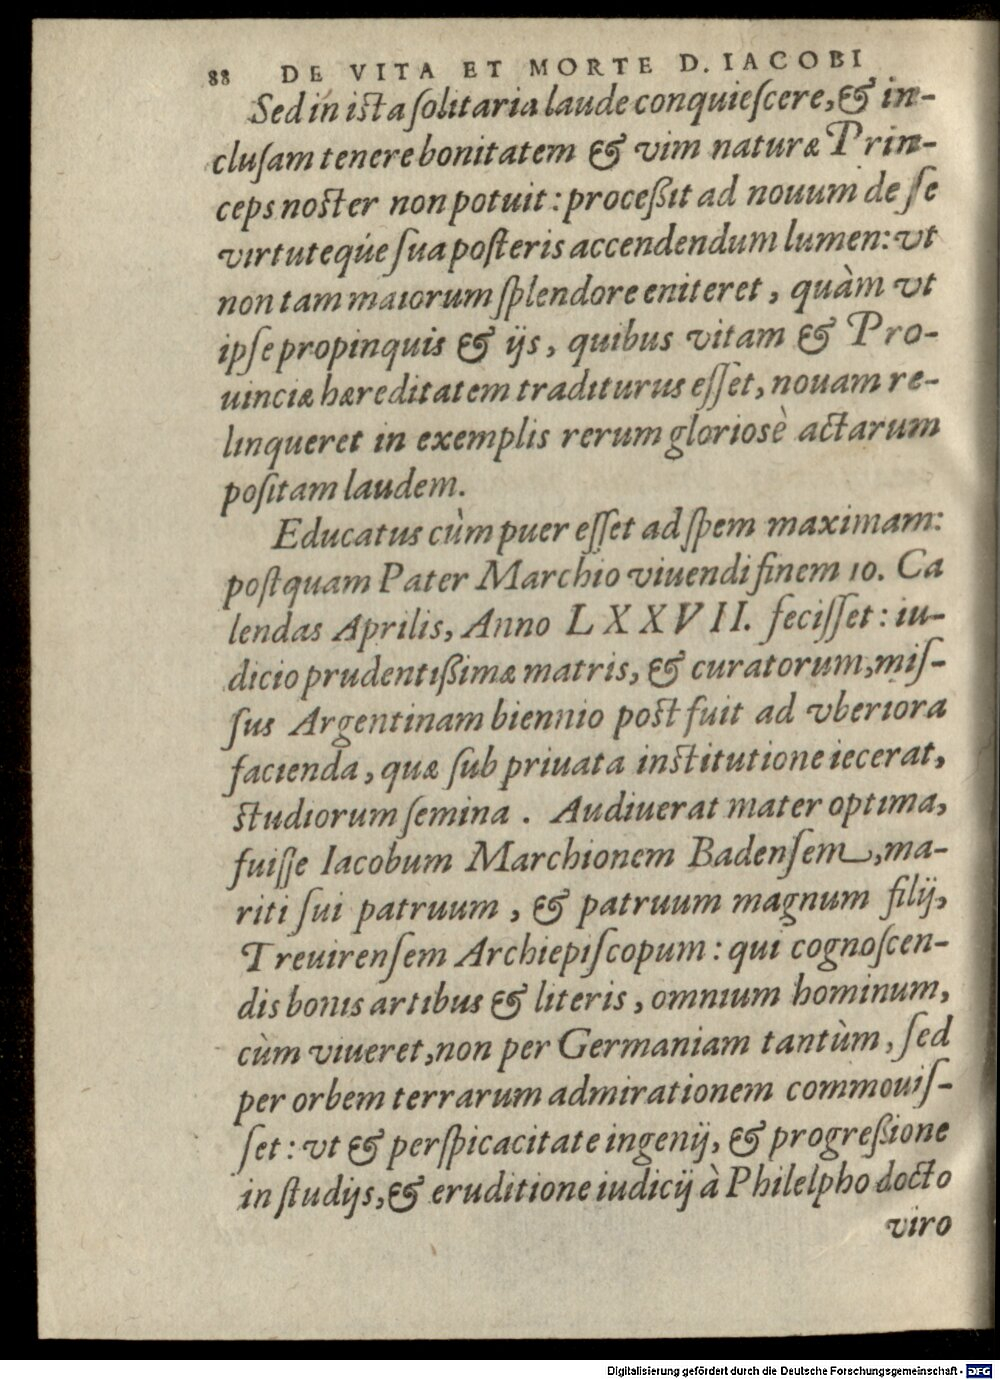 88 DE VITA ET MORTE D. IACOBI
Sed in ista ſolitaria laude conquieſcere, & in-
cluſam tenere bonitatem & vim naturæ Prin-
ceps noſter non potuit: proceßit ad nouum de ſe
virtuteq́ue ſua poſteris accendendum lumen: vt
non tam maiorum ſplendore eniteret, quàm vt
ipſe propinquis & ijs, quibus vitam & Pro-
uinciæ hæreditatem traditurus eſſet, nouam re-
linqueret in exemplis rerum gloriosè actarum
poſitam laudem.
Educatus cùm puer eſſet ad ſpem maximam:
poſtquam Pater Marchio viuendi finem 10. Ca
lendas Aprilis, Anno LXXVII. feciſſet: iu-
dicio prudentißimæ matris, & curatorum, miſ-
ſus Argentinam biennio poſt fuit ad vberiora
facienda, quæ ſub priuata inſtitutione iecerat,
ſtudiorum ſemina. Audiuerat mater optima,
fuiſſe Iacobum Marchionem Badenſem, ma-
riti ſui patruum, & patruum magnum filij,
Treuirenſem Archiepiſcopum: qui cognoſcen-
dis bonis artibus & literis, omnium hominum,
cùm viueret, non per Germaniam tantùm, ſed
per orbem terrarum admirationem commouiſ-
ſet: vt & perſpicacitate ingenij, & progreßione
in ſtudijs, & eruditione iudicij à Philelpho docto
viro
Digitalisierung gefördert durch die Deutsche Forschungsgemeinschaft - DFG